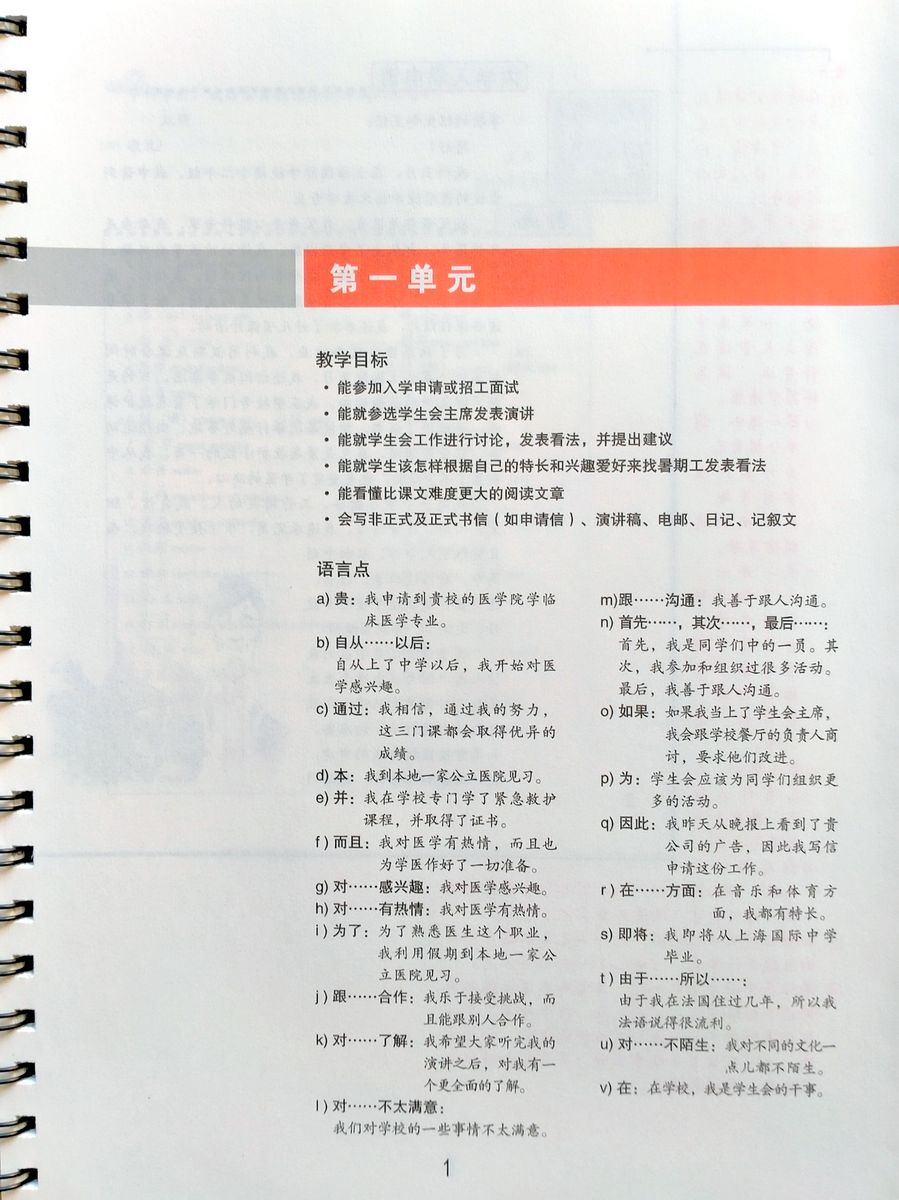 第一单元
教学目标
• 能参加入学申请或招工面试
• 能就参选学生会主席发表演讲
• 能就学生会工作进行讨论，发表看法，并提出建议
• 能就学生该怎样根据自己的特长和兴趣爱好来找暑期工发表看法
• 能看懂比课文难度更大的阅读文章
• 会写非正式及正式书信（如申请信）、演讲稿、电邮、日记、记叙文
语言点
a) 贵：我申请到贵校的医学院学临
床医学专业。
b) 自从……以后：
自从上了中学以后，我开始对医
学感兴趣。
c) 通过：我相信，通过我的努力，
这三门课都会取得优异的
成绩。
d) 本：我到本地一家公立医院见习。
e) 并：我在学校专门学了紧急救护
课程，并取得了证书。
f) 而且：我对医学有热情，而且也
为学医作好了一切准备。
g) 对……感兴趣：我对医学感兴趣。
h) 对……有热情：我对医学有热情。
i) 为了：为了熟悉医生这个职业，
我利用假期到本地一家公
立医院见习。
j) 跟……合作：我乐于接受挑战，而
且能跟别人合作。
k) 对……了解：我希望大家听完我的
演讲之后，对我有一
个更全面的了解。
l) 对……不太满意：
我们对学校的一些事情不太满意。
m)跟……沟通：我善于跟人沟通。
n) 首先……，其次……，最后……：
首先，我是同学们中的一员。其
次，我参加和组织过很多活动。
最后，我善于跟人沟通。
o) 如果：如果我当上了学生会主席，
我会跟学校餐厅的负责人商
讨，要求他们改进。
p) 为：学生会应该为同学们组织更
多的活动。
q) 因此：我昨天从晚报上看到了贵
公司的广告，因此我写信
申请这份工作。
r) 在……方面：在音乐和体育方
面，我都有特长。
s) 即将：我即将从上海国际中学
毕业。
t) 由于……所以……：
由于我在法国住过几年，所以我
法语说得很流利。
u) 对……不陌生：我对不同的文化一
点儿都不陌生。
v) 在：在学校，我是学生会的干事。
1